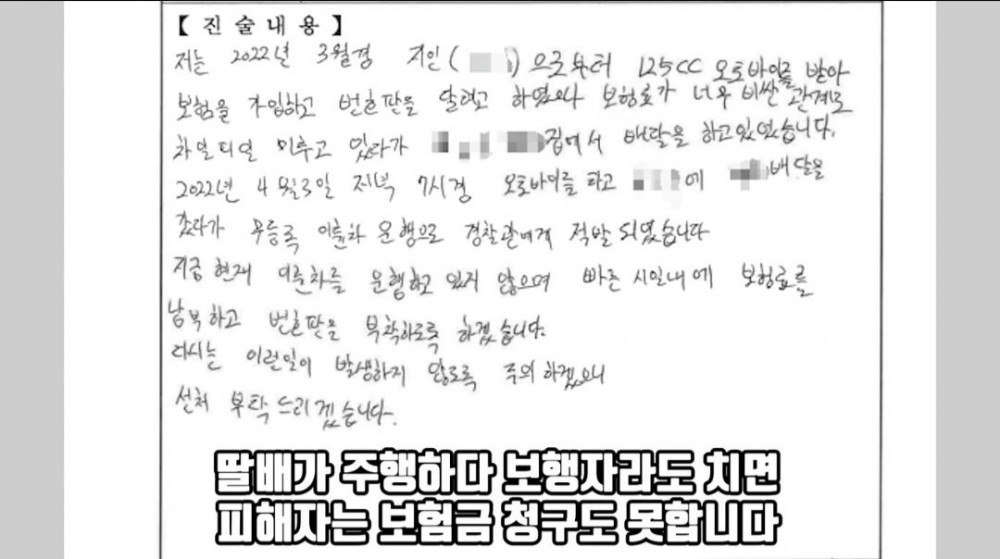 【 진 술 내 용 】
저는 2022년 3월경 지인( )으로부터 125CC 오토바이를 받아
보험을 가입하고 번호판을 달려고 하였으나 보험료가 너무 비싼 관계로
차일피일 미루고 있다가 집에서 배달을 하고있었습니다.
2022년 4월3일 저녁 7시경 오토바이를 타고 에 배달을
갔다가 무등록 이륜차 운행으로 경찰관에게 적발 되었습니다
지금 현재 이륜차를 운행하고 있지 않으며 빠른 시일내에 보험료를
납부하고 번호판을 부착하도록 하겠습니다.
다시는 이런일이 발생하지 않도록 주의 하겠으니
선처 부탁드리겠습니다.
딸배가 주행하다 보행자라도 치면
피해자는 보험금 청구도 못합니다